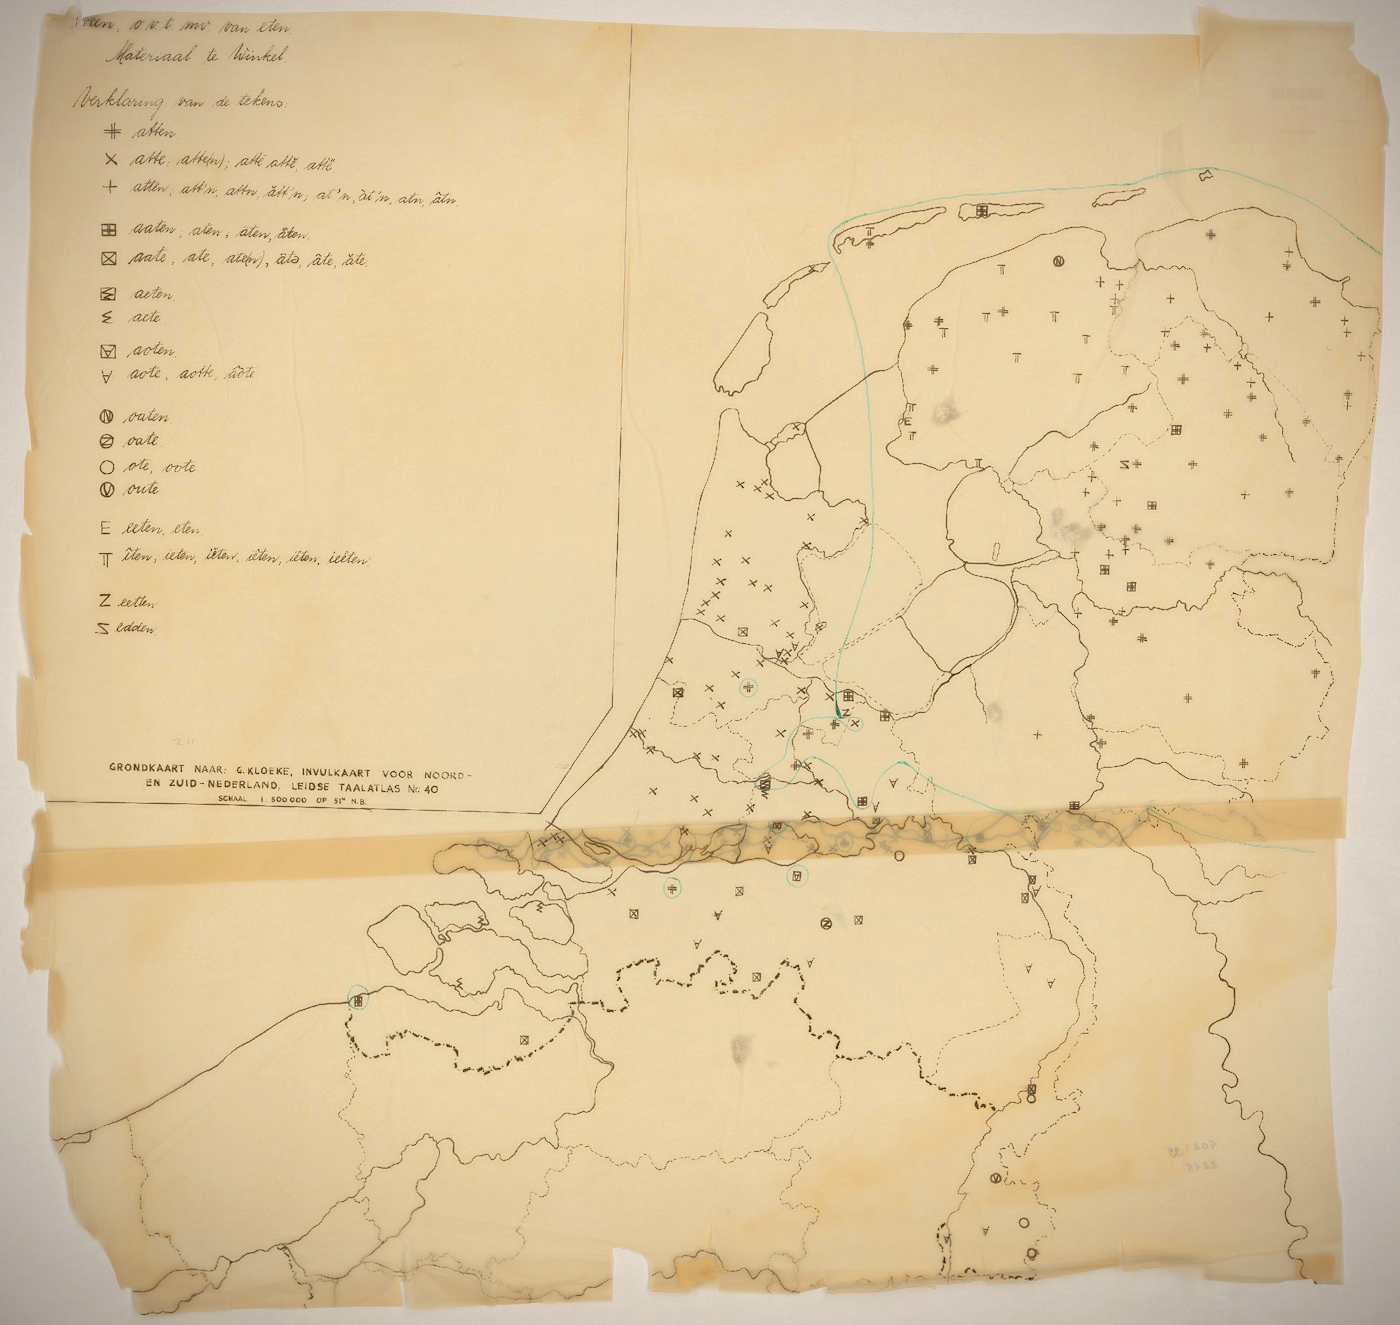 o.v.t. mv. van eten.
Materiaal te Winkel
Verklaring van de tekens
atten
atte, atte(n); atté attĕ, attë
atten, att'n, attn, ătt'n, at'n, ăt'n, atn, ătn.
aaten, aten, āten, âten.
aate, ate, ate(n), āte, âte, ăte.
aeten
aete
aoten.
aote, aotte, āōte
oaten
oate
ote, oote
oute
eeten, eten.
īten, ieten, iëten, iêten, iéten, ieëten
eetten
edden.
GRONDKAART NAAR: G. KLOEKE, INVULKAART VOOR NOORD-
EN ZUID-NEDERLAND, LEIDSE TAALATLAS Nr. 40
SCHAAL 1:500 000 OP 51° N.B.